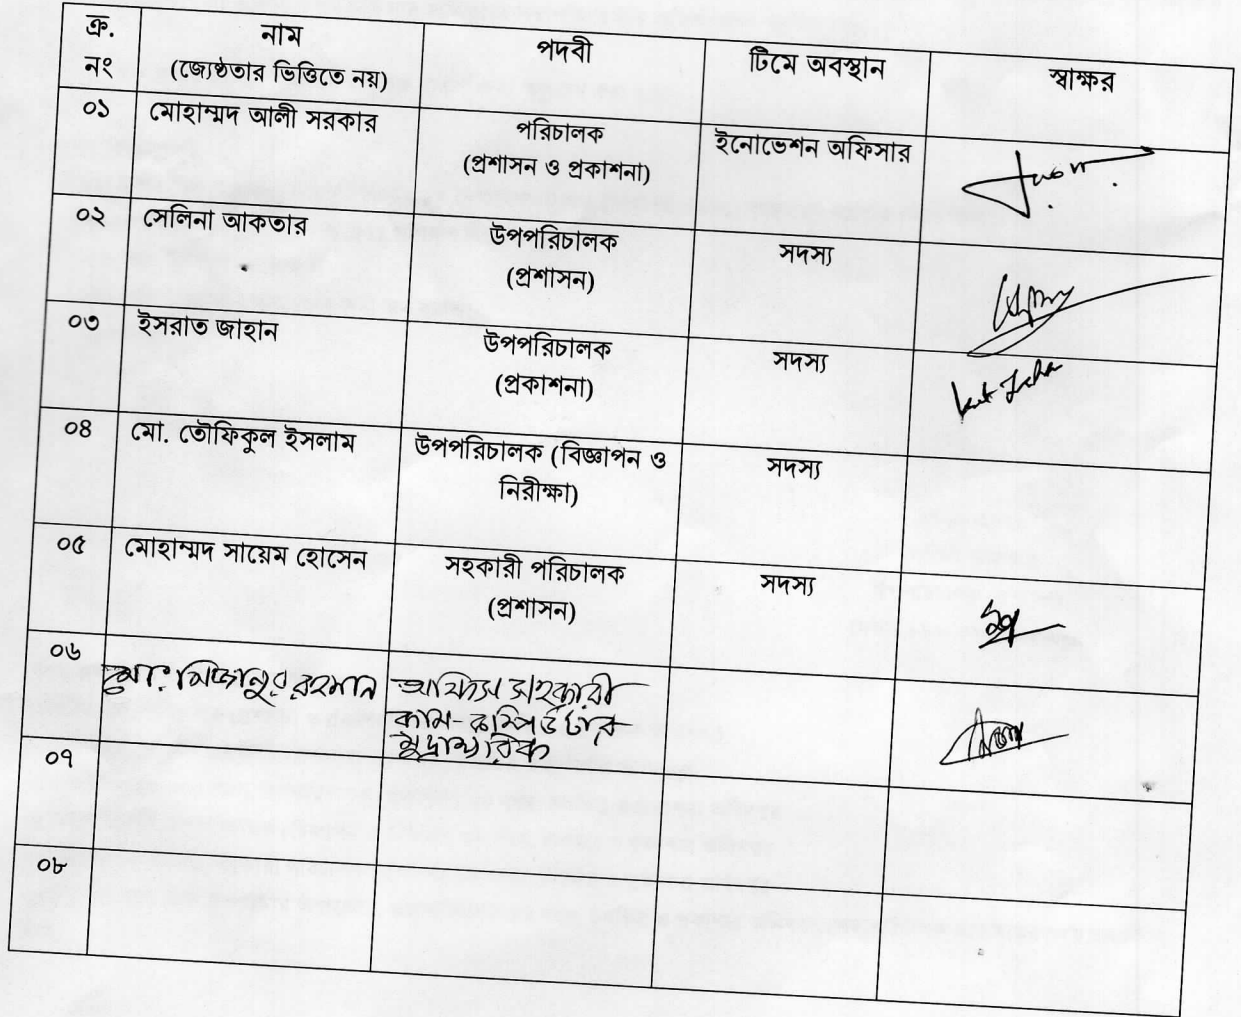 ক্র. নং | নাম (জ্যেষ্ঠতার ভিত্তিতে নয়) | পদবী | টিমে অবস্থান | স্বাক্ষর
০১ | মোহাম্মদ আলী সরকার | পরিচালক (প্রশাসন ও প্রকাশনা) | ইনোভেশন অফিসার
০২ | সেলিনা আকতার | উপপরিচালক (প্রশাসন) | সদস্য
০৩ | ইসরাত জাহান | উপপরিচালক (প্রকাশনা) | সদস্য
০৪ | মো. তৌফিকুল ইসলাম | উপপরিচালক (বিজ্ঞাপন ও নিরীক্ষা) | সদস্য
০৫ | মোহাম্মদ সায়েম হোসেন | সহকারী পরিচালক (প্রশাসন) | সদস্য
০৬ | মো: মিজানুর রহমান | অফিস সহকারী কাম-কম্পিউটার মুদ্রাক্ষরিক
০৭
০৮